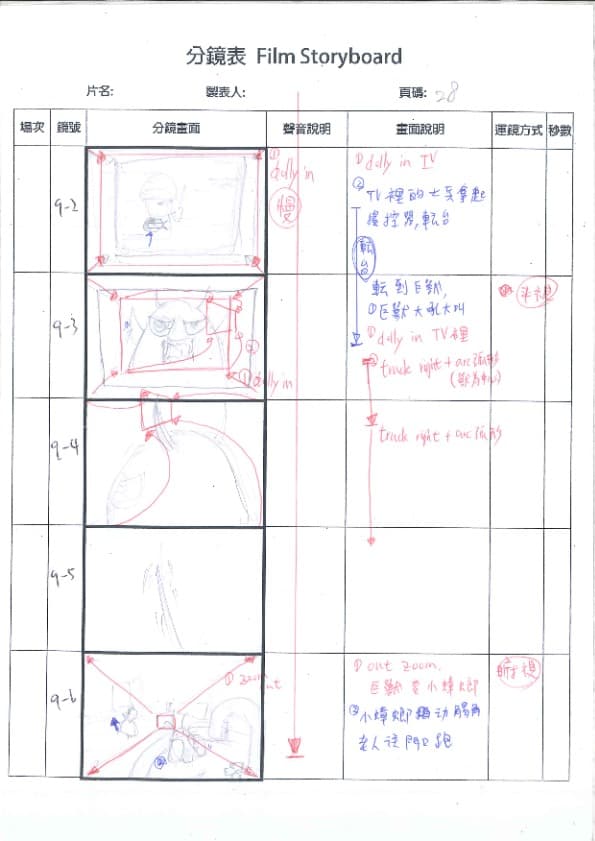 分鏡表 Film Storyboard
片名: 製表人: 頁碼: 28
場次 鏡號 分鏡畫面 聲音說明 畫面說明 運鏡方式 秒數
9-2
① dolly in
慢
① dolly in TV
② TV 裡的士兵拿起
遙控器,轉台
轉台
9-3
① dolly in
②
轉到巨獸,
① 巨獸大吼大叫
① dolly in TV 裡
② track right + arc 弧形
(獸為中心)
平視
9-4
track right + arc 弧形
9-5
9-6
① zoom out
②
① out zoom.
巨獸變小蟑螂
② 小蟑螂動觸角
老人往門口跑
俯視